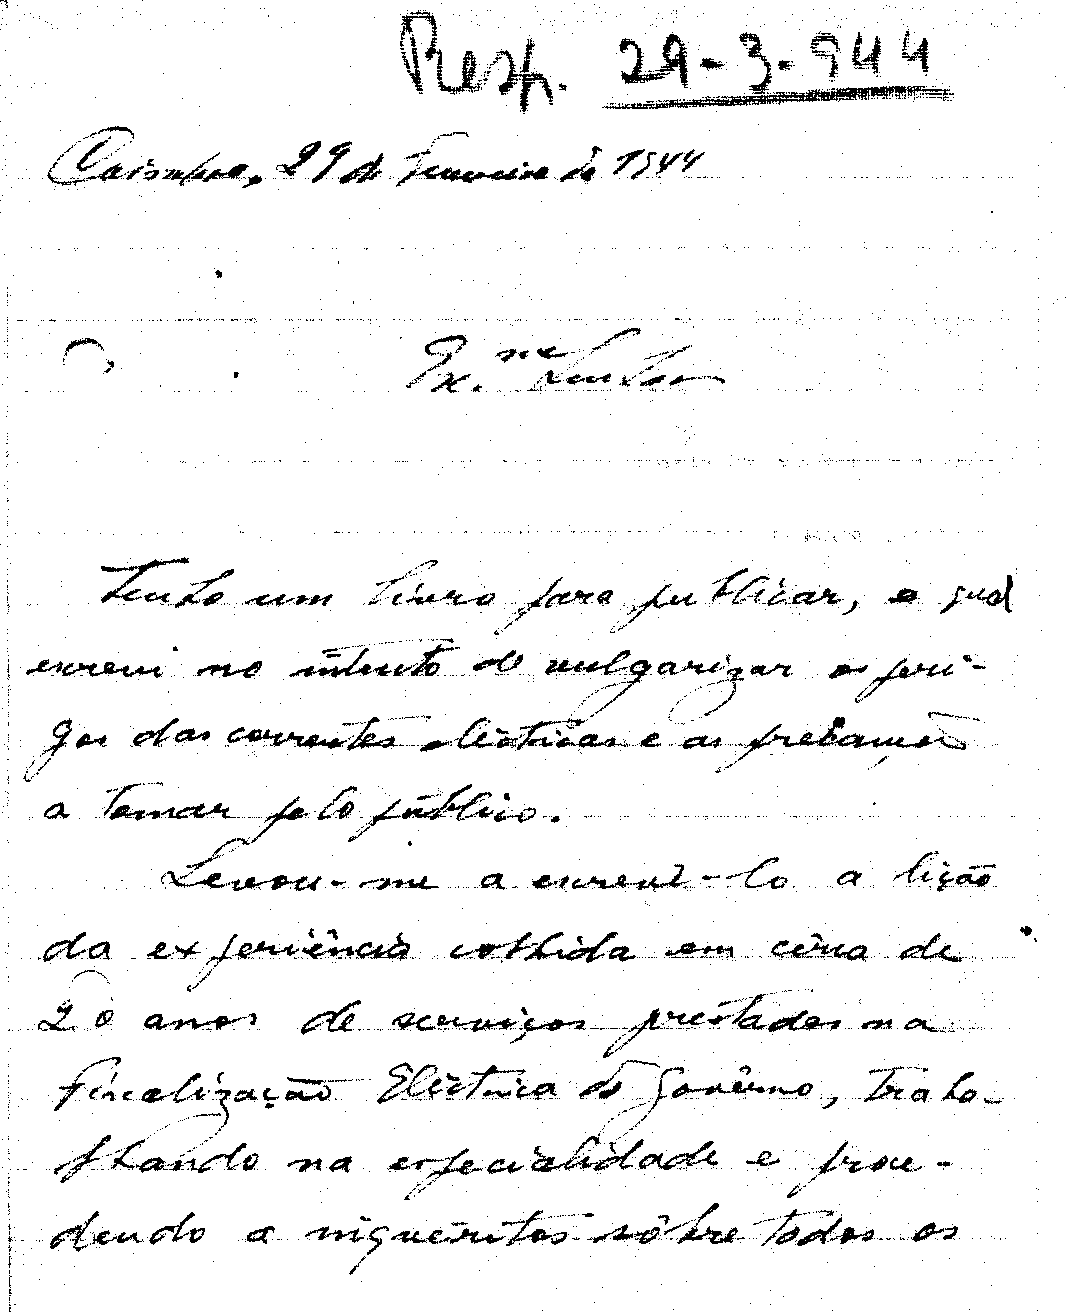 Resp. 29-3-944
Coimbra, 29 de Fevereiro de 1944
Ex.ma Senhora
Tenho um livro para publicar, o qual
escrevi no intuito de vulgarizar os peri-
gos das correntes eléctricas e as precauções
a tomar pelo público.
Levou-me a escrevê-lo a lição
da experiência colhida em cêrca de
20 anos de serviços prestados na
Fiscalização Eléctrica do Govêrno, traba-
lhando na especialidade e proce-
dendo a inquéritos sôbre todos os